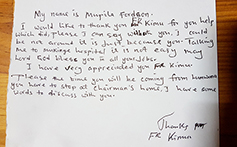 My name is Mupila Ferdson.
I would like to thank you Fr Kimu for you help
which did, Please I can say without you, I could
be not around it is Just because you. Talking
me to mukinge hospital it is not easy may
Lord God bless you in all your Jobs.
I have very appreciated you Fr Kimmu.
Please the time you will be coming from
you have to stop at chairman's home, I have some
words to discuss with you.
Thanks
FR Kimmu